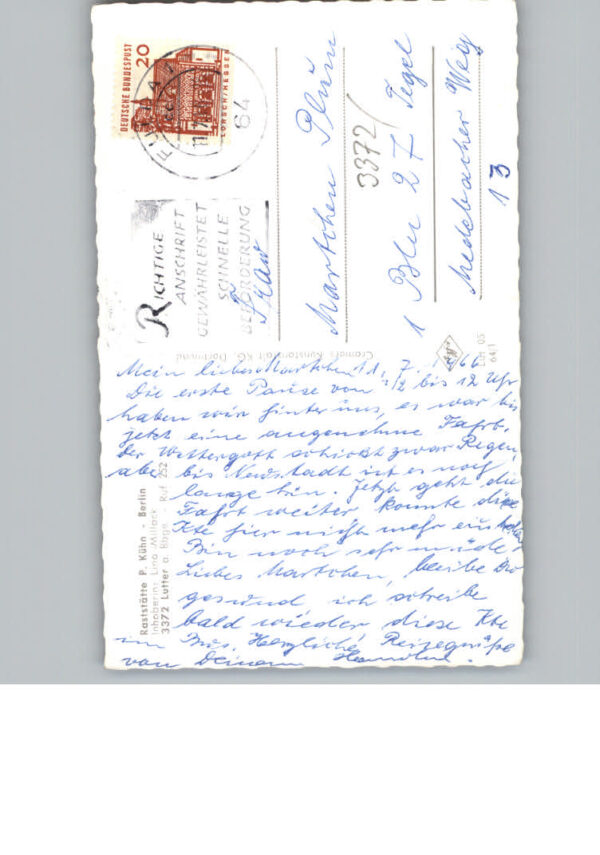 DEUTSCHE BUNDESPOST
20
LORSCH/HESSEN
FULDA
64
RICHTIGE
ANSCHRIFT
GEWÄHRLEISTET
SCHNELLE
BEFÖRDERUNG
Frau
Martchen Plüm
3372/
1 Bln 27 Tegel
Medebacher Weg
13
Cramers Kunstanstalt KG. Dortmund
Agfa
LtH 05
64/1
Mein liebes Martchen, 11. 7. 66
Die erste Pause von 1/2 bis 12 Uhr
haben wir hinter uns, es war bis
jetzt eine angenehme Fahrt.
Der Wettergott schickt zwar Regen,
aber bis Neustadt ist es noch
lange hin. Jetzt geht die
Fahrt weiter konnte diese
Kte hier nicht mehr
Bin noch sehr müde.
Liebes Martchen, bleibe Du
gesund, ich schreibe
bald wieder diese Kte
im Bus. Herzliche Reisegrüße
von Deinem
Raststätte P. Kühn - Berlin
Inhaberin: Lina Millack
3372 Lutter a. Bbge. Ruf 252